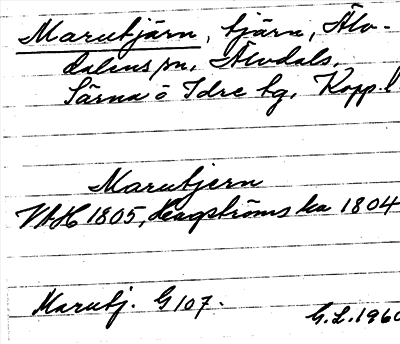 Marubjärn, tjärn, Älv-
dalens sn, Älvdals,
Särna o Idre tg, Kopp. l
Marubjern
VAH 1805, Hagströms ka 1804
Marubj. G 107.
G.L. 1960